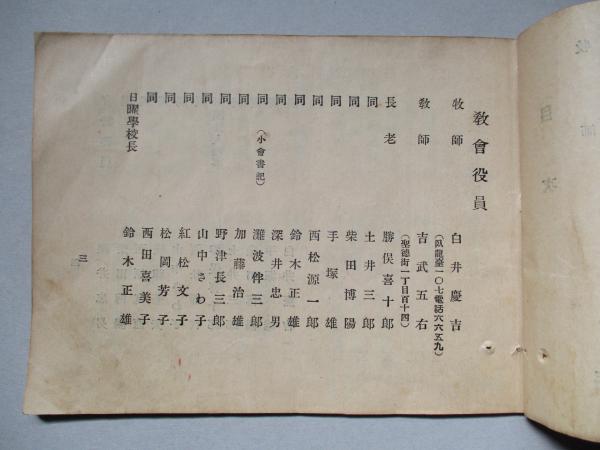 教會役員
牧師 白井慶吉
（臥龍臺一〇七電話六六五九）
教師 吉武五右
（聖德街一丁目百十四）
長老 勝俣喜十郎
同 土井三郎
同 柴田博陽
同 手塚雄
同 西松源一郎
同 鈴木正雄
同 深井忠男
同（小會書記） 灘波伴三郎
同 加藤治雄
同 野津長三郎
同 山中さわ子
同 紅松文子
同 松岡芳子
同 西田喜美子
日曜學校長 鈴木正雄
三